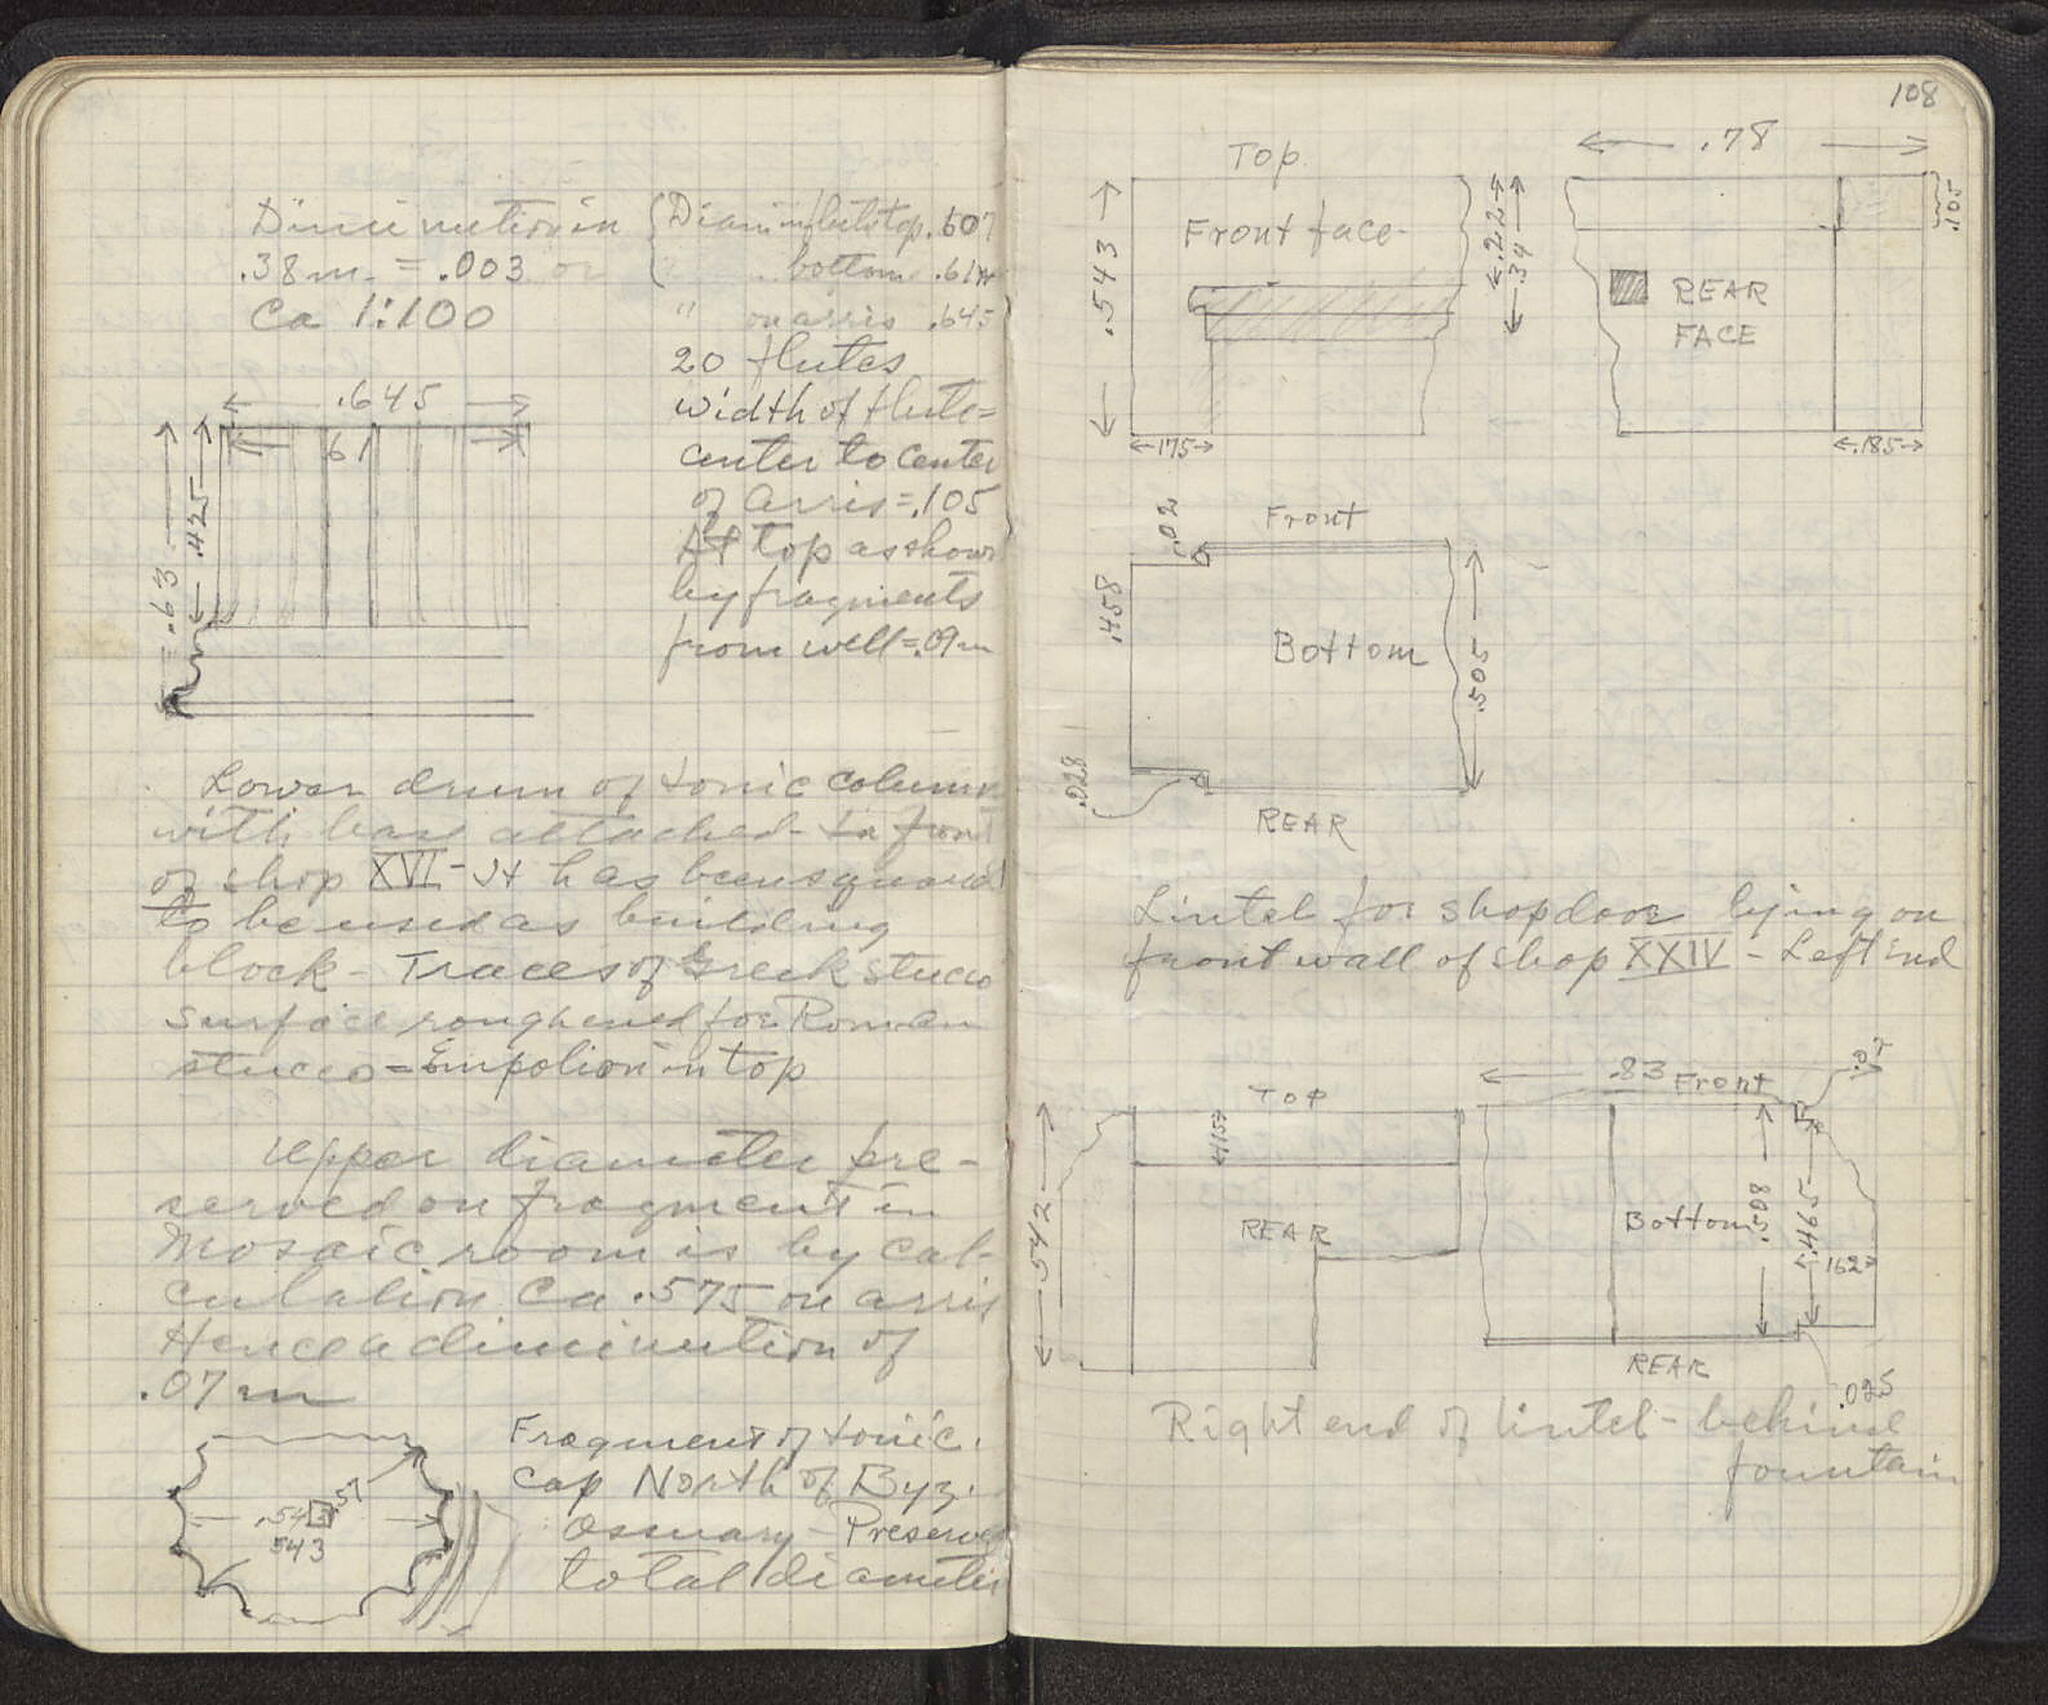 Diminution in
.38 m. = .003 or
Ca 1:100
Diam in flutes top .607
" bottom .61
" on arris .645
20 flutes
width of flute =
center to center
of arris = .105
At top as shown
by fragments
from well = .09 m
.645
.61
.63
.425
Lower drum of Ionic column
with base attached - in front
of shop XVI - It has been squared
to be used as building
block - Traces of Greek stucco
surface roughened for Roman
stucco = Empolion in top
Upper diameter pre-
served on fragment in
Mosaic room is by cal-
culation Ca .575 on arris
Hence a diminution of
.07 m
.57
.543
543
Fragment of Ionic
cap North of Byz.
Ossuary - Preserved
total diameter
108
Top
Front face
.543
.22
.34
.175
.78
.105
REAR
FACE
.185
.02
Front
.458
Bottom
.505
.028
REAR
Lintel for shop door lying on
front wall of shop XXIV - Left end
Top
.115
REAR
.542
.83
Front
Bottom
.508
.465
.162
REAR
.025
Right end of lintel - behind
fountain